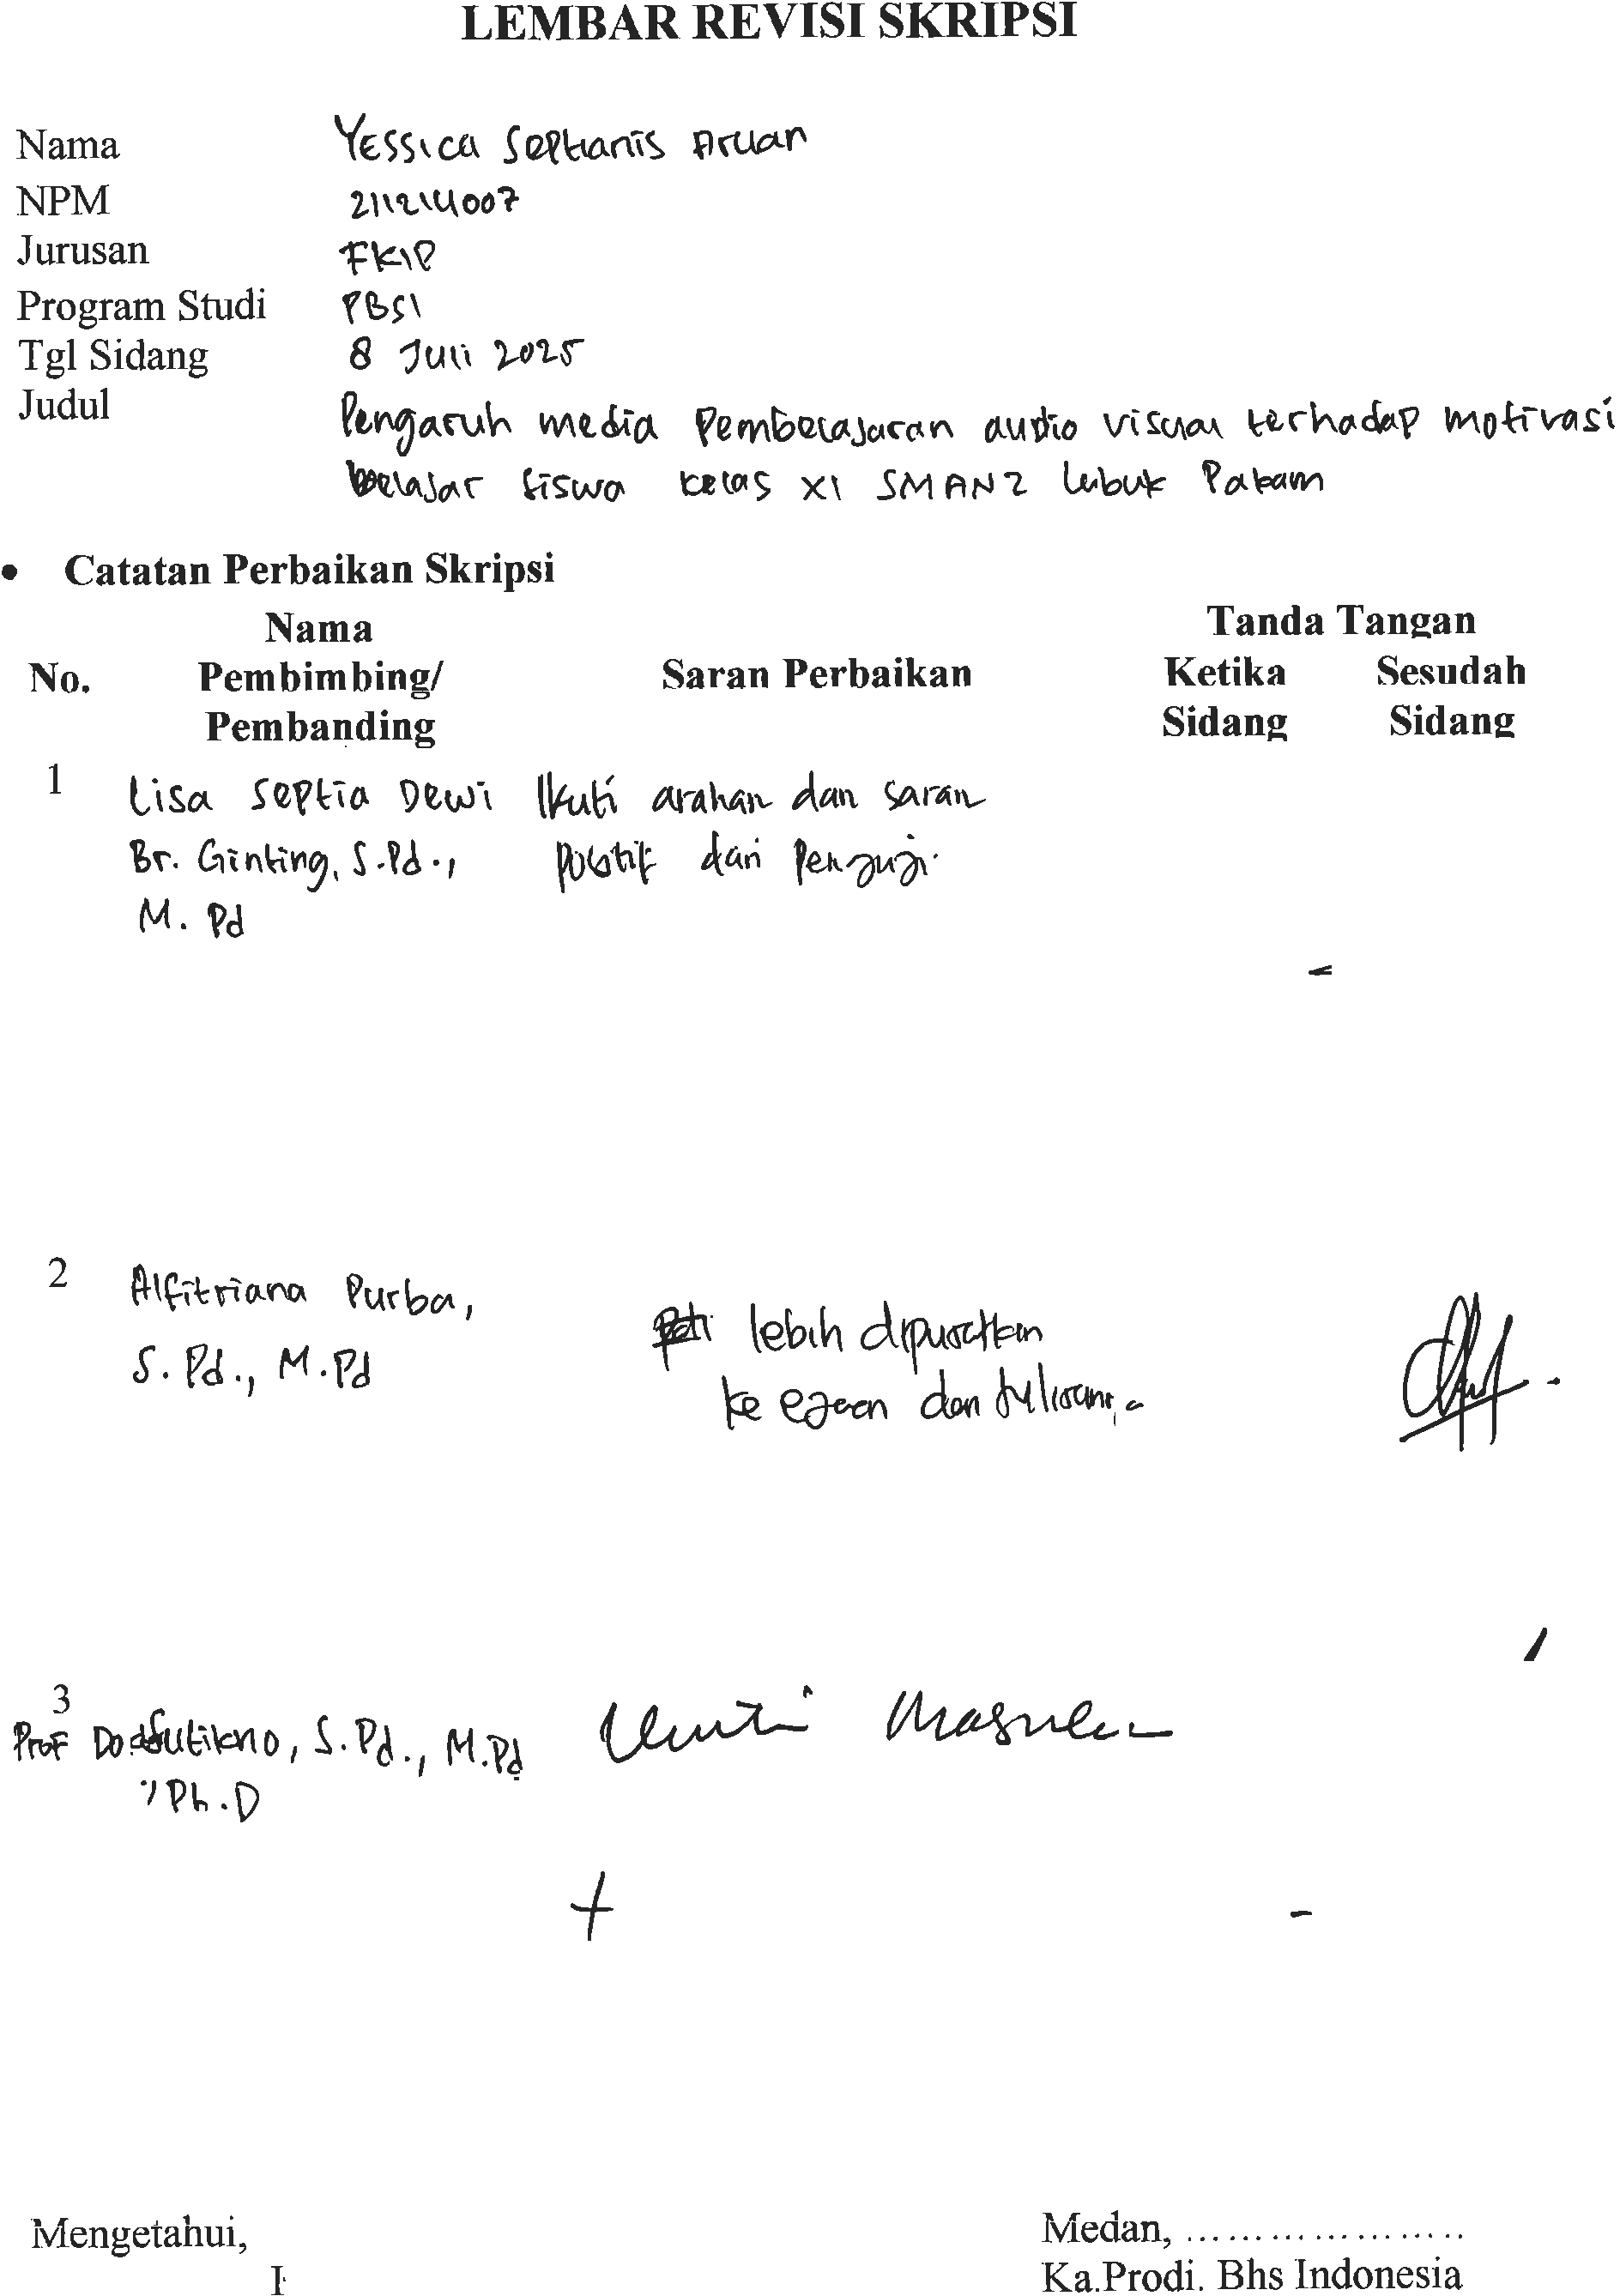 LEMBAR REVISI SKRIPSI
Nama Yessica Septianis Aruan
NPM 211214007
Jurusan FKIP
Program Studi PBSI
Tgl Sidang 8 Juli 2025
Judul Pengaruh media Pembelajaran audio visual terhadap motivasi
belajar siswa kelas XI SMAN2 Lubuk Pakam
• Catatan Perbaikan Skripsi
No. Nama Pembimbing/ Pembanding Saran Perbaikan Tanda Tangan
Ketika Sidang Sesudah Sidang
1 Lisa Septia Dewi Ikuti arahan dan saran
Br. Ginting, S.Pd., positif dari Penguji.
M. Pd
2 Alfitriana Purba, lebih dipusatkan
S. Pd., M.Pd ke ejaan dan tulisan,
3
Prof S.Pd., M.Pd
Ph.D
Mengetahui, Medan, ....................
Ka.Prodi. Bhs Indonesia